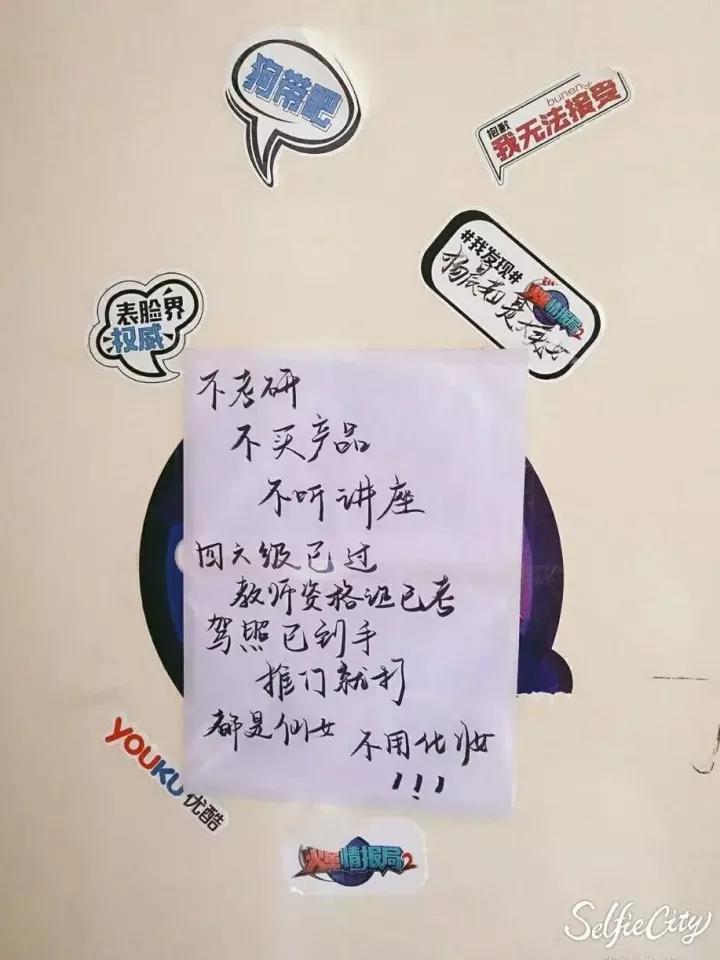 狗带吧
bunene
抱歉
我无法接受
#我发现#
火星情报局2
表脸界
权威
不考研
不买产品
不听讲座
四六级已过
教师资格证已考
驾照已到手
推门就打
都是仙女 不用化妆
!!!
YOUKU 优酷
火星情报局2
SelfieCity